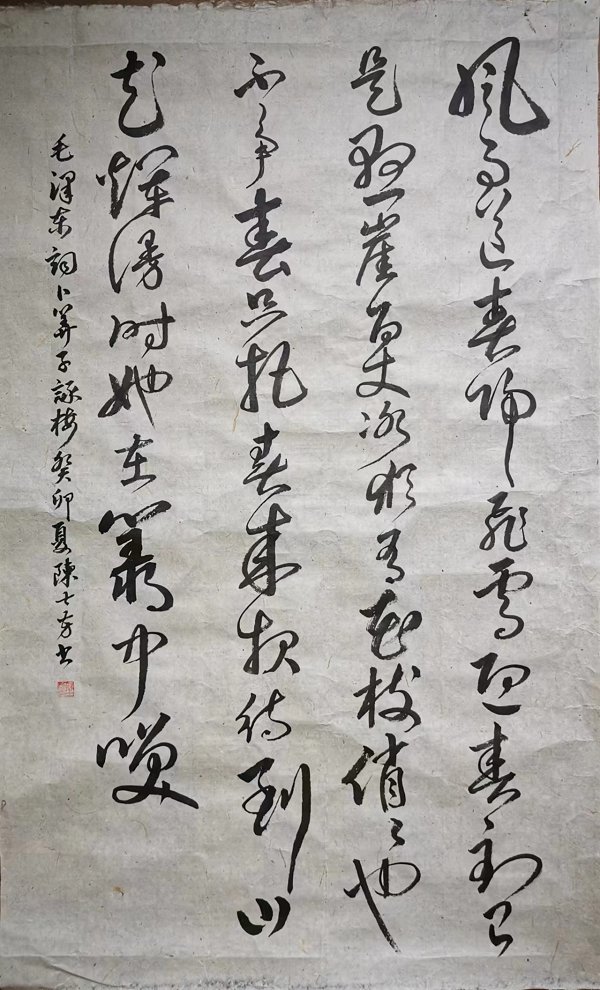 風雨送春歸飛雪迎春到已
是懸崖百丈冰猶有花枝俏〻也
不爭春只把春來報待到山
花爛漫时她在叢中咲
毛澤东詞卜算子詠梅癸卯夏陳士芳书